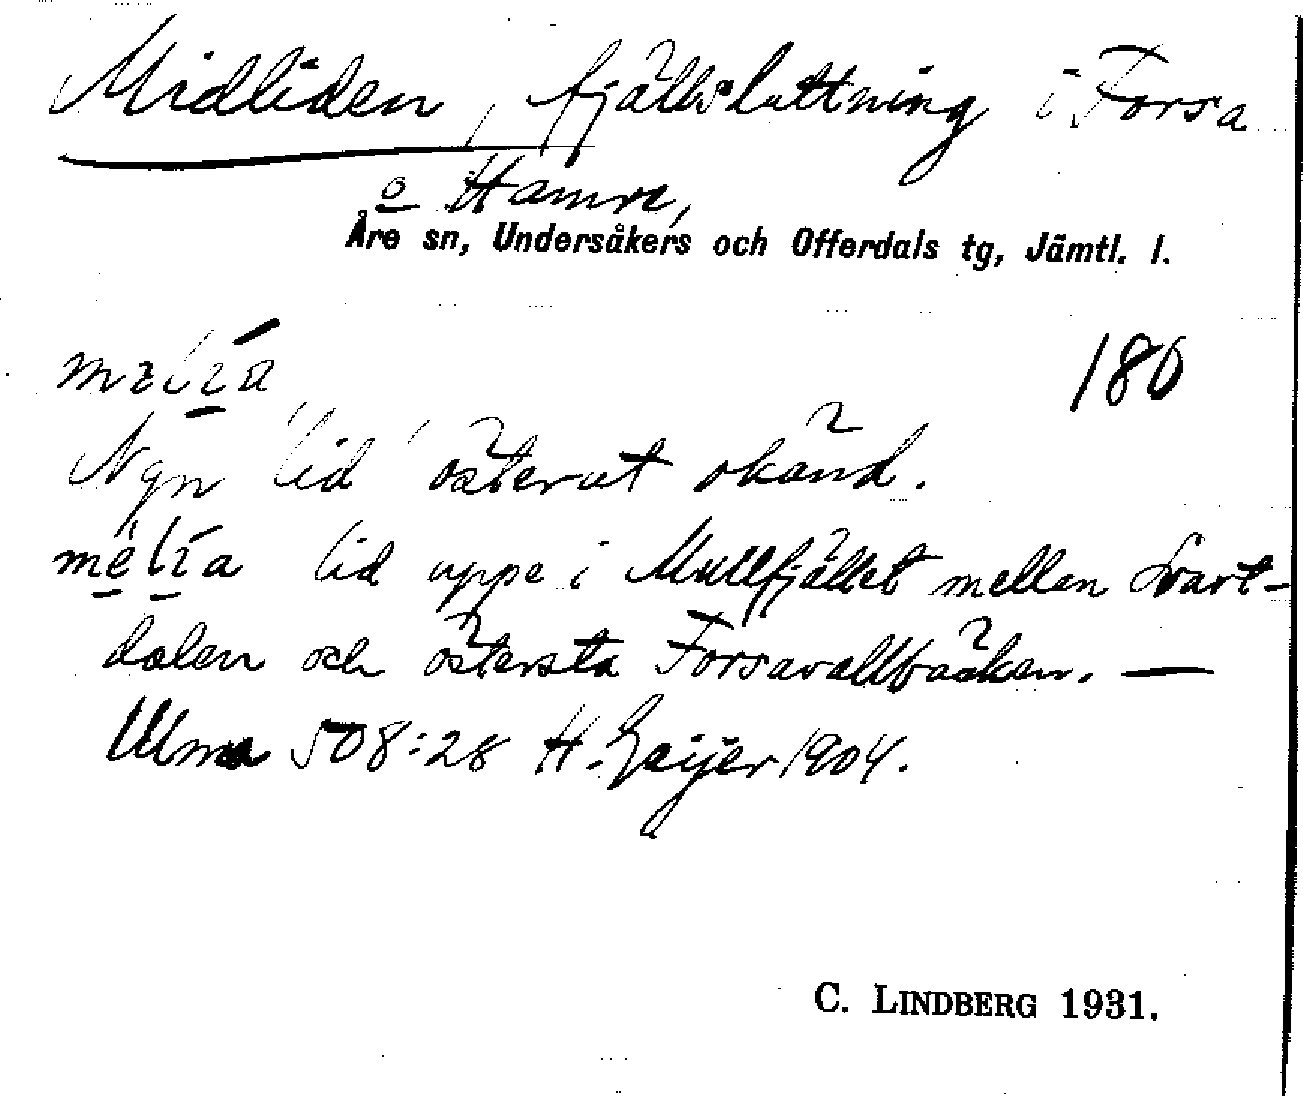 Midliden, fjällsluttning i Forsa
o Hamre,
Åre sn, Undersåkers och Offerdals tg, Jämtl. l.
180
Nyn 'lid' österut okänd.
lid uppe i Mullfjället mellan Svart-
dalen och östersta Forsavallbäcken. —
Ulma 508:28 H. Geijer 1904.
C. LINDBERG 1931.